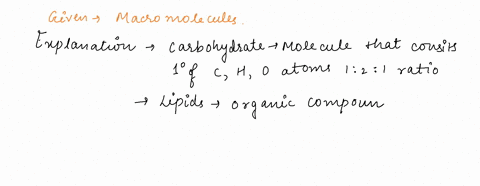 Given → Macromolecules.
Explanation → Carbohydrate → Molecule that consits
1° of C, H, O atoms 1:2:1 ratio
→ Lipids → organic compoun